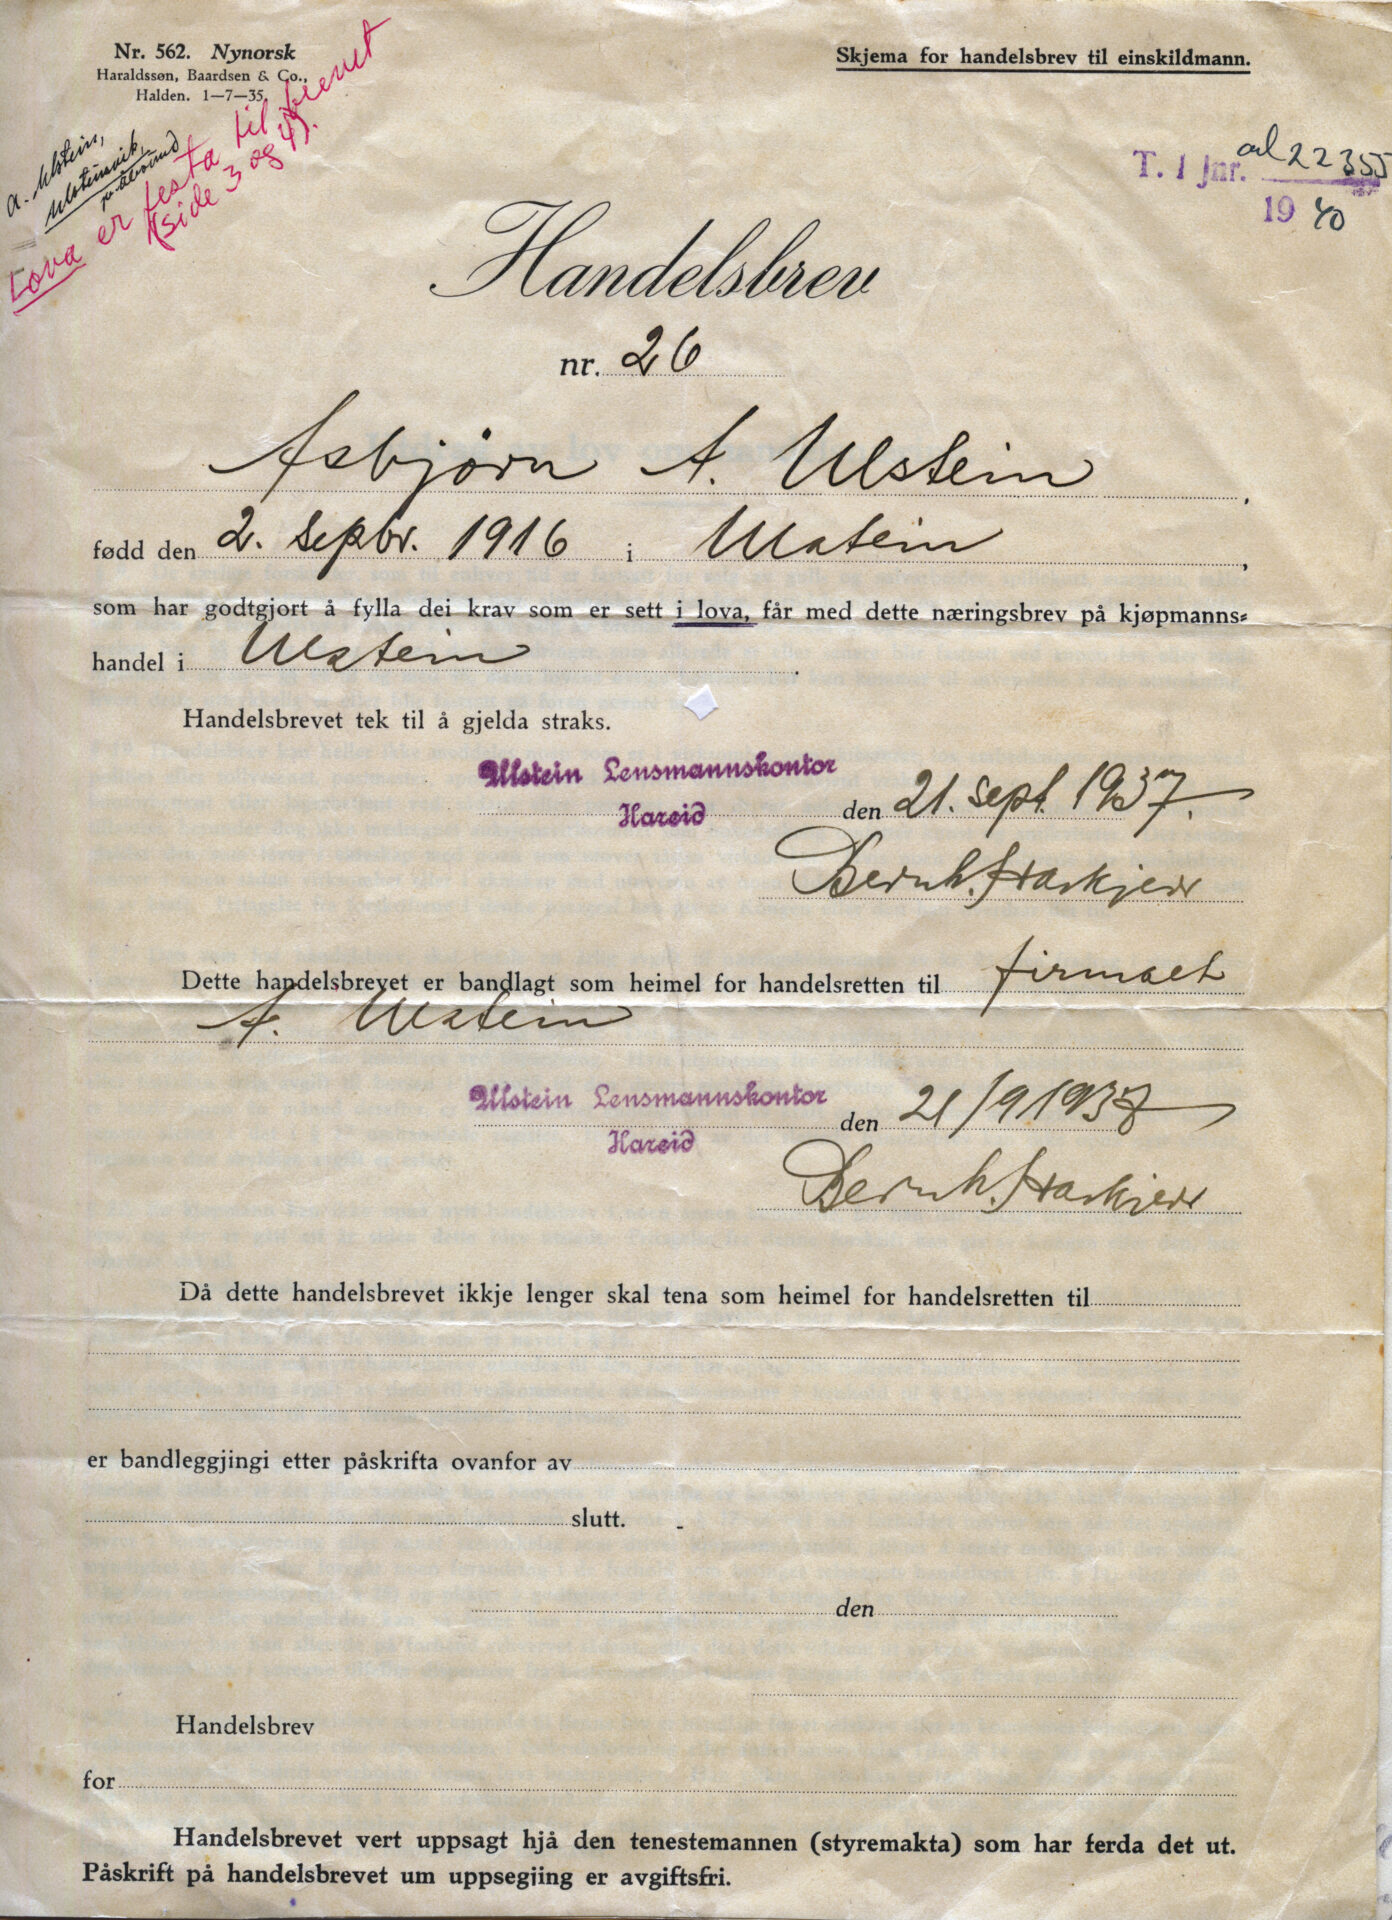 Nr. 562. Nynorsk
Haraldssøn, Baardsen & Co.,
Halden. 1—7—35.
Skjema for handelsbrev til einskildmann.
A. Ulstein,
Ulsteinvik,
Lova er festa til brevet
(side 3 og 4).
T. 1 jnr. 22355
1940
Handelsbrev
nr. 26
Asbjørn A. Ulstein,
fødd den 2. septbr. 1916 i Ulstein,
som har godtgjort å fylla dei krav som er sett i lova, får med dette næringsbrev på kjøpmanns-
handel i Ulstein.
Handelsbrevet tek til å gjelda straks.
Ulstein Lensmannskontor
Hareid den 21. sept. 1937.
Bernh. Havkjerr
Dette handelsbrevet er bandlagt som heimel for handelsretten til firmaet
A. Ulstein
Ulstein Lensmannskontor
Hareid den 21/9 1937
Bernh. Havkjerr
Då dette handelsbrevet ikkje lenger skal tena som heimel for handelsretten til
er bandleggjingi etter påskrifta ovanfor av
slutt.
den
Handelsbrev
for
Handelsbrevet vert uppsagt hjå den tenestemannen (styremakta) som har ferda det ut.
Påskrift på handelsbrevet um uppsegjing er avgiftsfri.